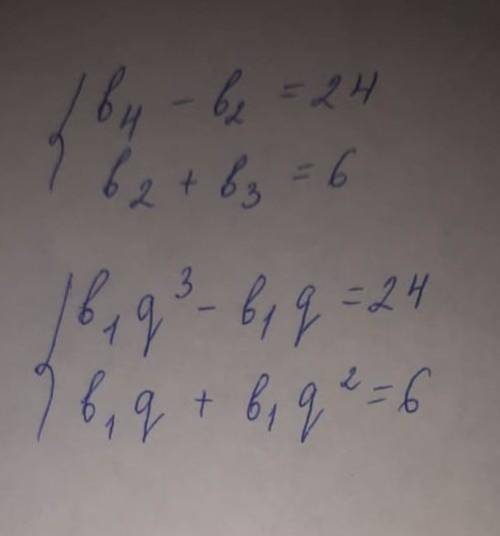 b₄ - b₂ = 24
b₂ + b₃ = 6
b₁q³ - b₁q = 24
b₁q + b₁q² = 6